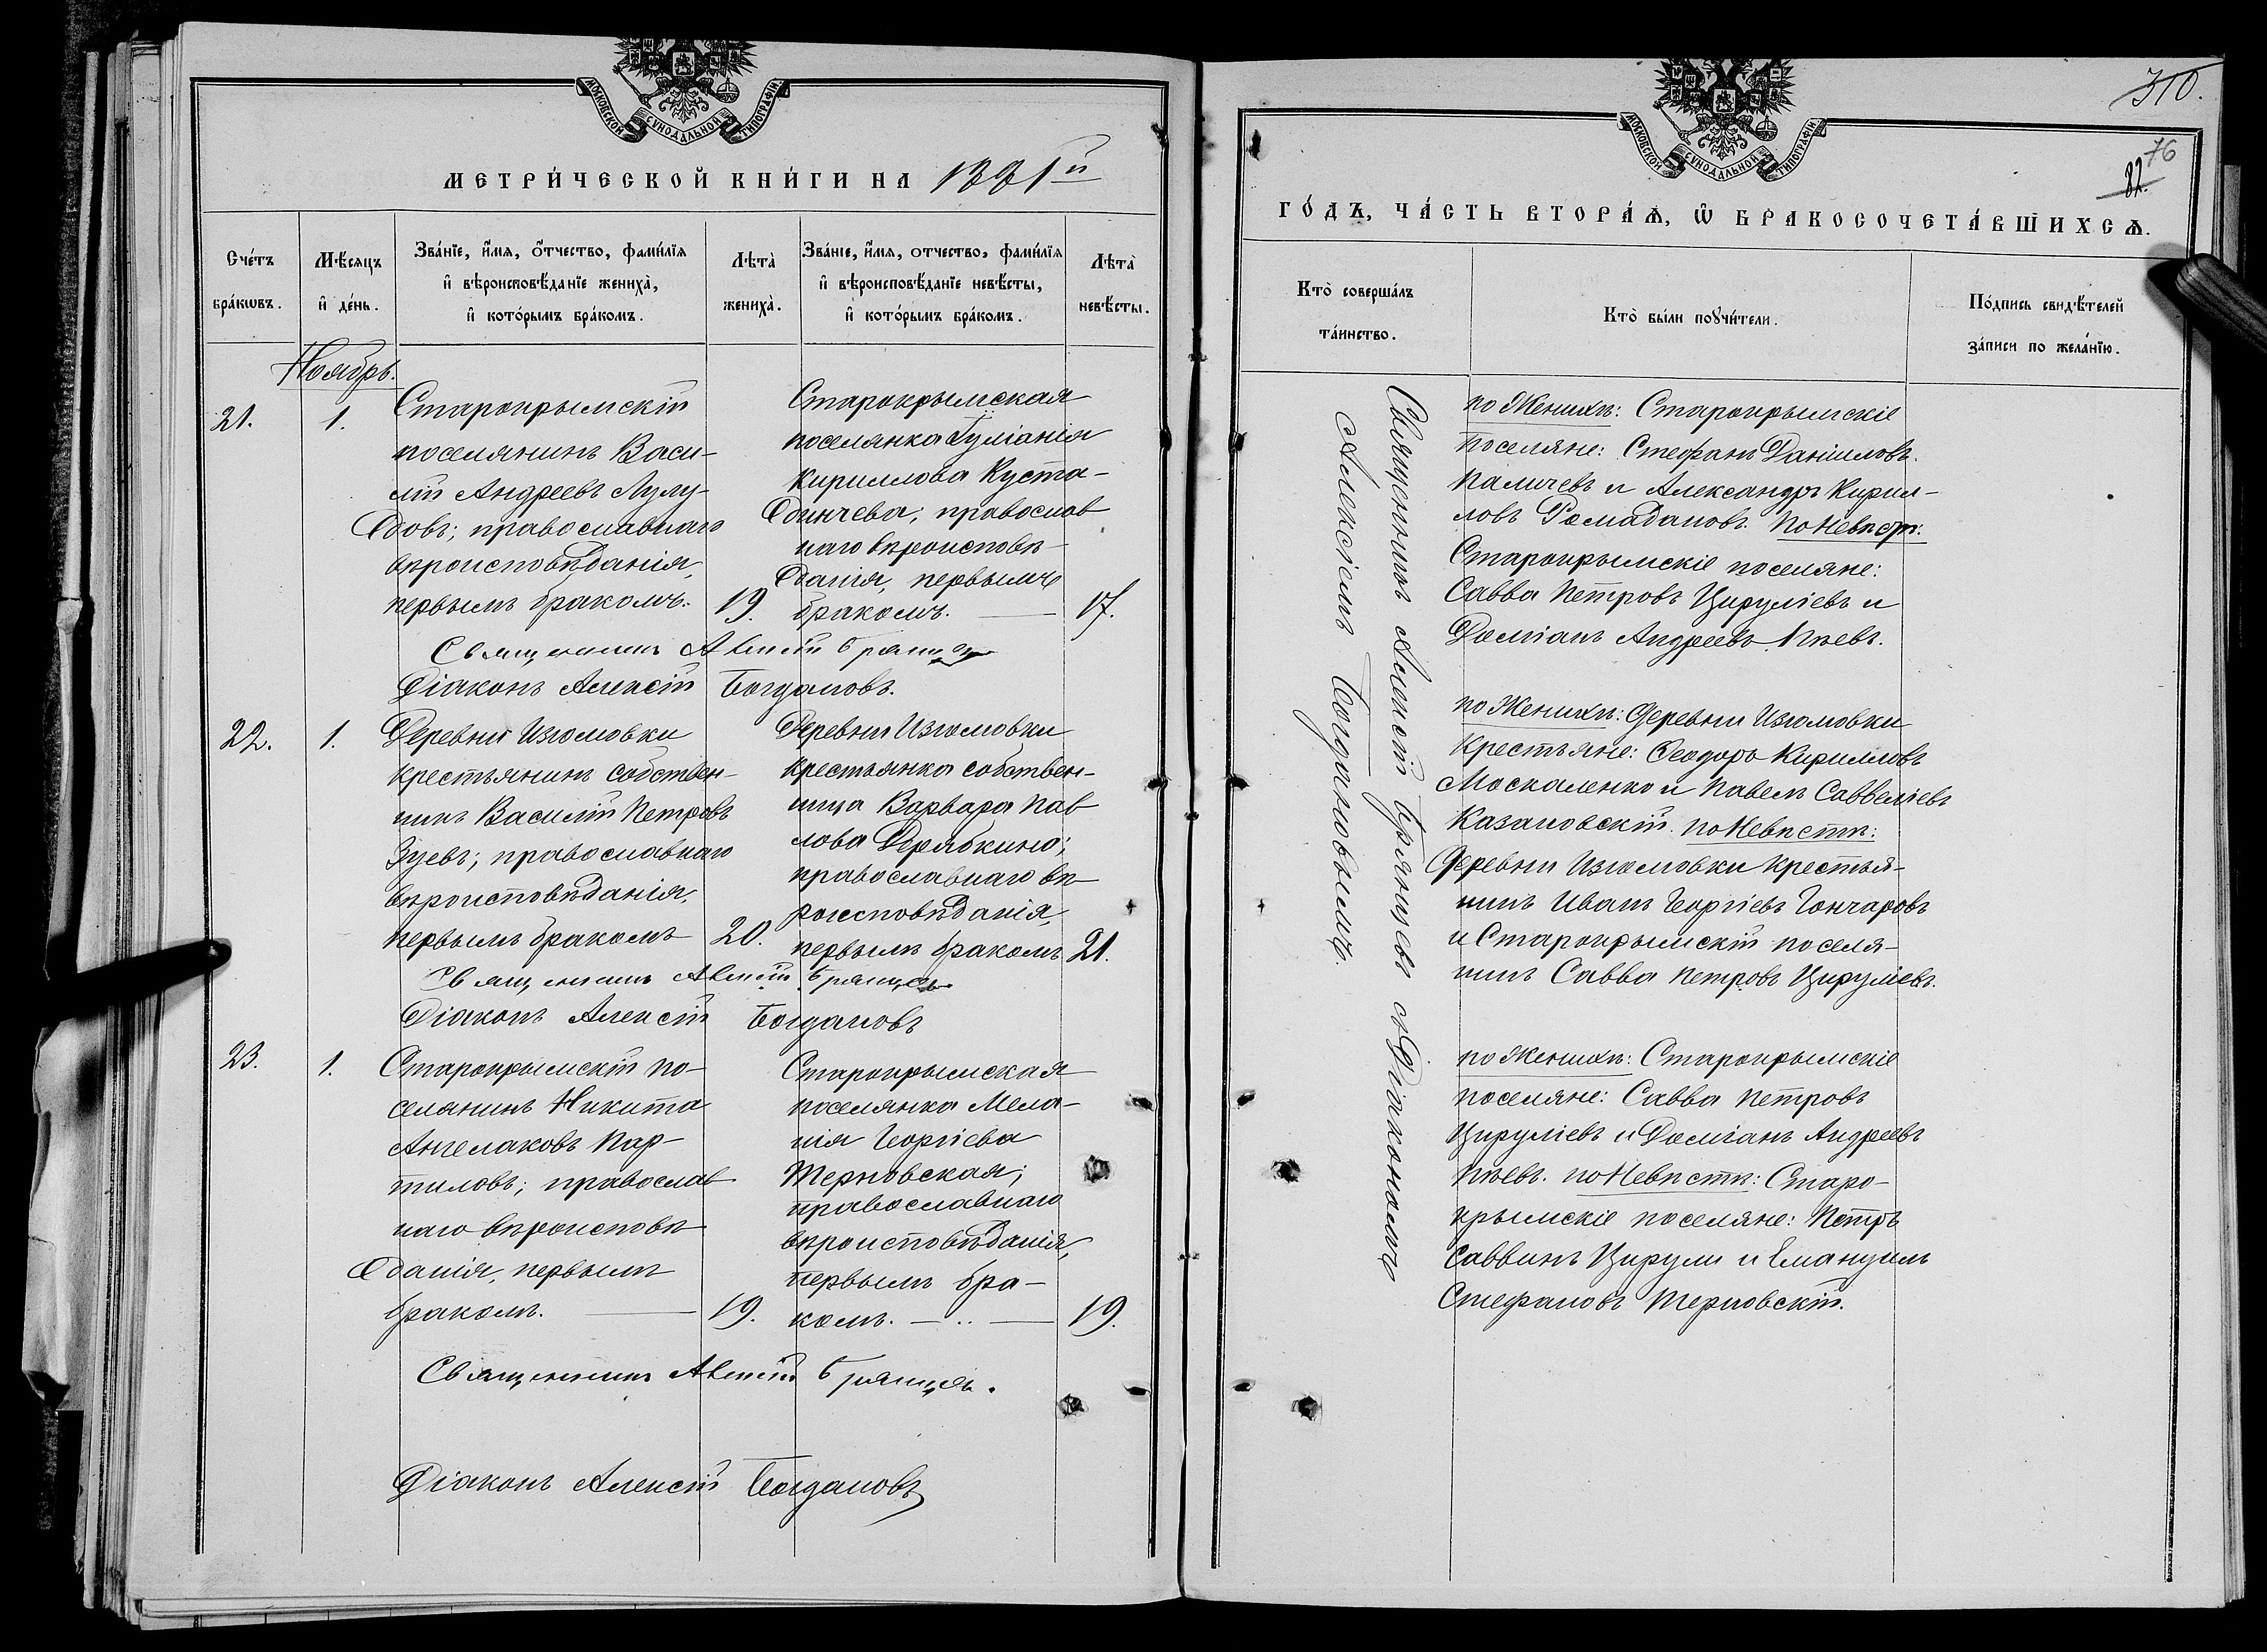 МОСКОВСКОЙ СѴНОДАЛЬНОЙ ТИПОГРАФІИ
МЕТРИ́ЧЕСКОЙ КНИ́ГИ НА 1881й
Сче́тъ бра́кωвъ.
Мѣ́сяцъ и҆ де́нь.
Зва́нїе, и҆́мя, о҆́тчество, фами́лїя
и҆ вѣроисповѣ́данїе жениха̀,
и҆ кото́рымъ бра́комъ.
Лѣта̀ жениха̀.
Зва́нїе, и҆́мя, отчество, фами́лїя
и҆ вѣроисповѣ́данїе невѣ́сты,
и҆ кото́рымъ бра́комъ.
Лѣта̀ невѣ́сты.
Ноябрь.
21.
1.
Старокрымскій
поселянинъ Васи-
лій Андреевъ Лулу-
довъ; православнаго
вѣроисповѣданія,
первымъ бракомъ.
19.
Старокрымская
поселянка Гуліанія
Кириллова Куста-
динчева; православ
наго вѣроисповѣ-
данія, первымъ
бракомъ.
17.
Священникъ Алексій Брянцевъ
Діаконъ Алексій Богдановъ.
22.
1.
Деревни Изюмовки
крестьянинъ собствен-
никъ Василій Петровъ
Зуевъ; православнаго
вѣроисповѣданія,
первымъ бракомъ
20.
Деревни Изюмовки
крестьянка собствен-
ница Варвара Пав
лова Дерябкина;
православнаго вѣ-
роисповѣданія,
первымъ бракомъ
21.
Священникъ Алексій Брянцевъ
Діаконъ Алексій Богдановъ
23.
1.
Старокрымскій по-
селянинъ Никита
Ангелаковъ Пар-
тиловъ; православ
наго вѣроисповѣ
данія, первымъ
бракомъ.
19.
Старокрымская
поселянка Мела-
нія Георгіева
Терновская;
православнаго
вѣроисповѣданія,
первымъ бра-
комъ.
19.
Священникъ Алексій Брянцевъ.
Діаконъ Алексій Богдановъ
310.
76
82.
МОСКОВСКОЙ СѴНОДАЛЬНОЙ ТИПОГРАФІИ
ГО́ДЪ, ЧА́СТЬ ВТОРА́Ѧ, Ѡ҆ БРАКОСОЧЕТА́ВШИХСѦ.
Кто̀ соверша́лъ
та́инство.
Кто̀ бы́ли поꙋчи́тели.
По́дпись свидѣ́телей
за́писи по жела́нїю.
Священникъ Алексій Брянцевъ съ Діакономъ
Алексіемъ Богдановымъ.
по Женихѣ: Старокрымскіе
поселяне: Стефанъ Даніиловъ
Паличевъ и Александръ Кирил-
ловъ Ромадановъ. по Невѣст:
Старокрымскіе поселяне:
Савва Петровъ Цируліевъ и
Даміанъ Андреевъ Пѣевъ.
по Женихѣ: Деревни Изюмовки
крестьяне: Ѳеодоръ Кирилловъ
Москаленко и Павелъ Савельіевъ
Казановскій. по Невѣстѣ:
Деревни Изюмовки крестья-
нинъ Иванъ Георгіевъ Гончаровъ
и Старокрымскій поселя-
нинъ Савва Петровъ Цируліевъ.
по Женихѣ: Старокрымскіе
поселяне: Савва Петровъ
Цируліевъ и Даміанъ Андреевъ
Пѣевъ. по Невѣстѣ: Старо-
крымскіе поселяне: Петръ
Саввинъ Цирули и Емануилъ
Стефановъ Терновскій.